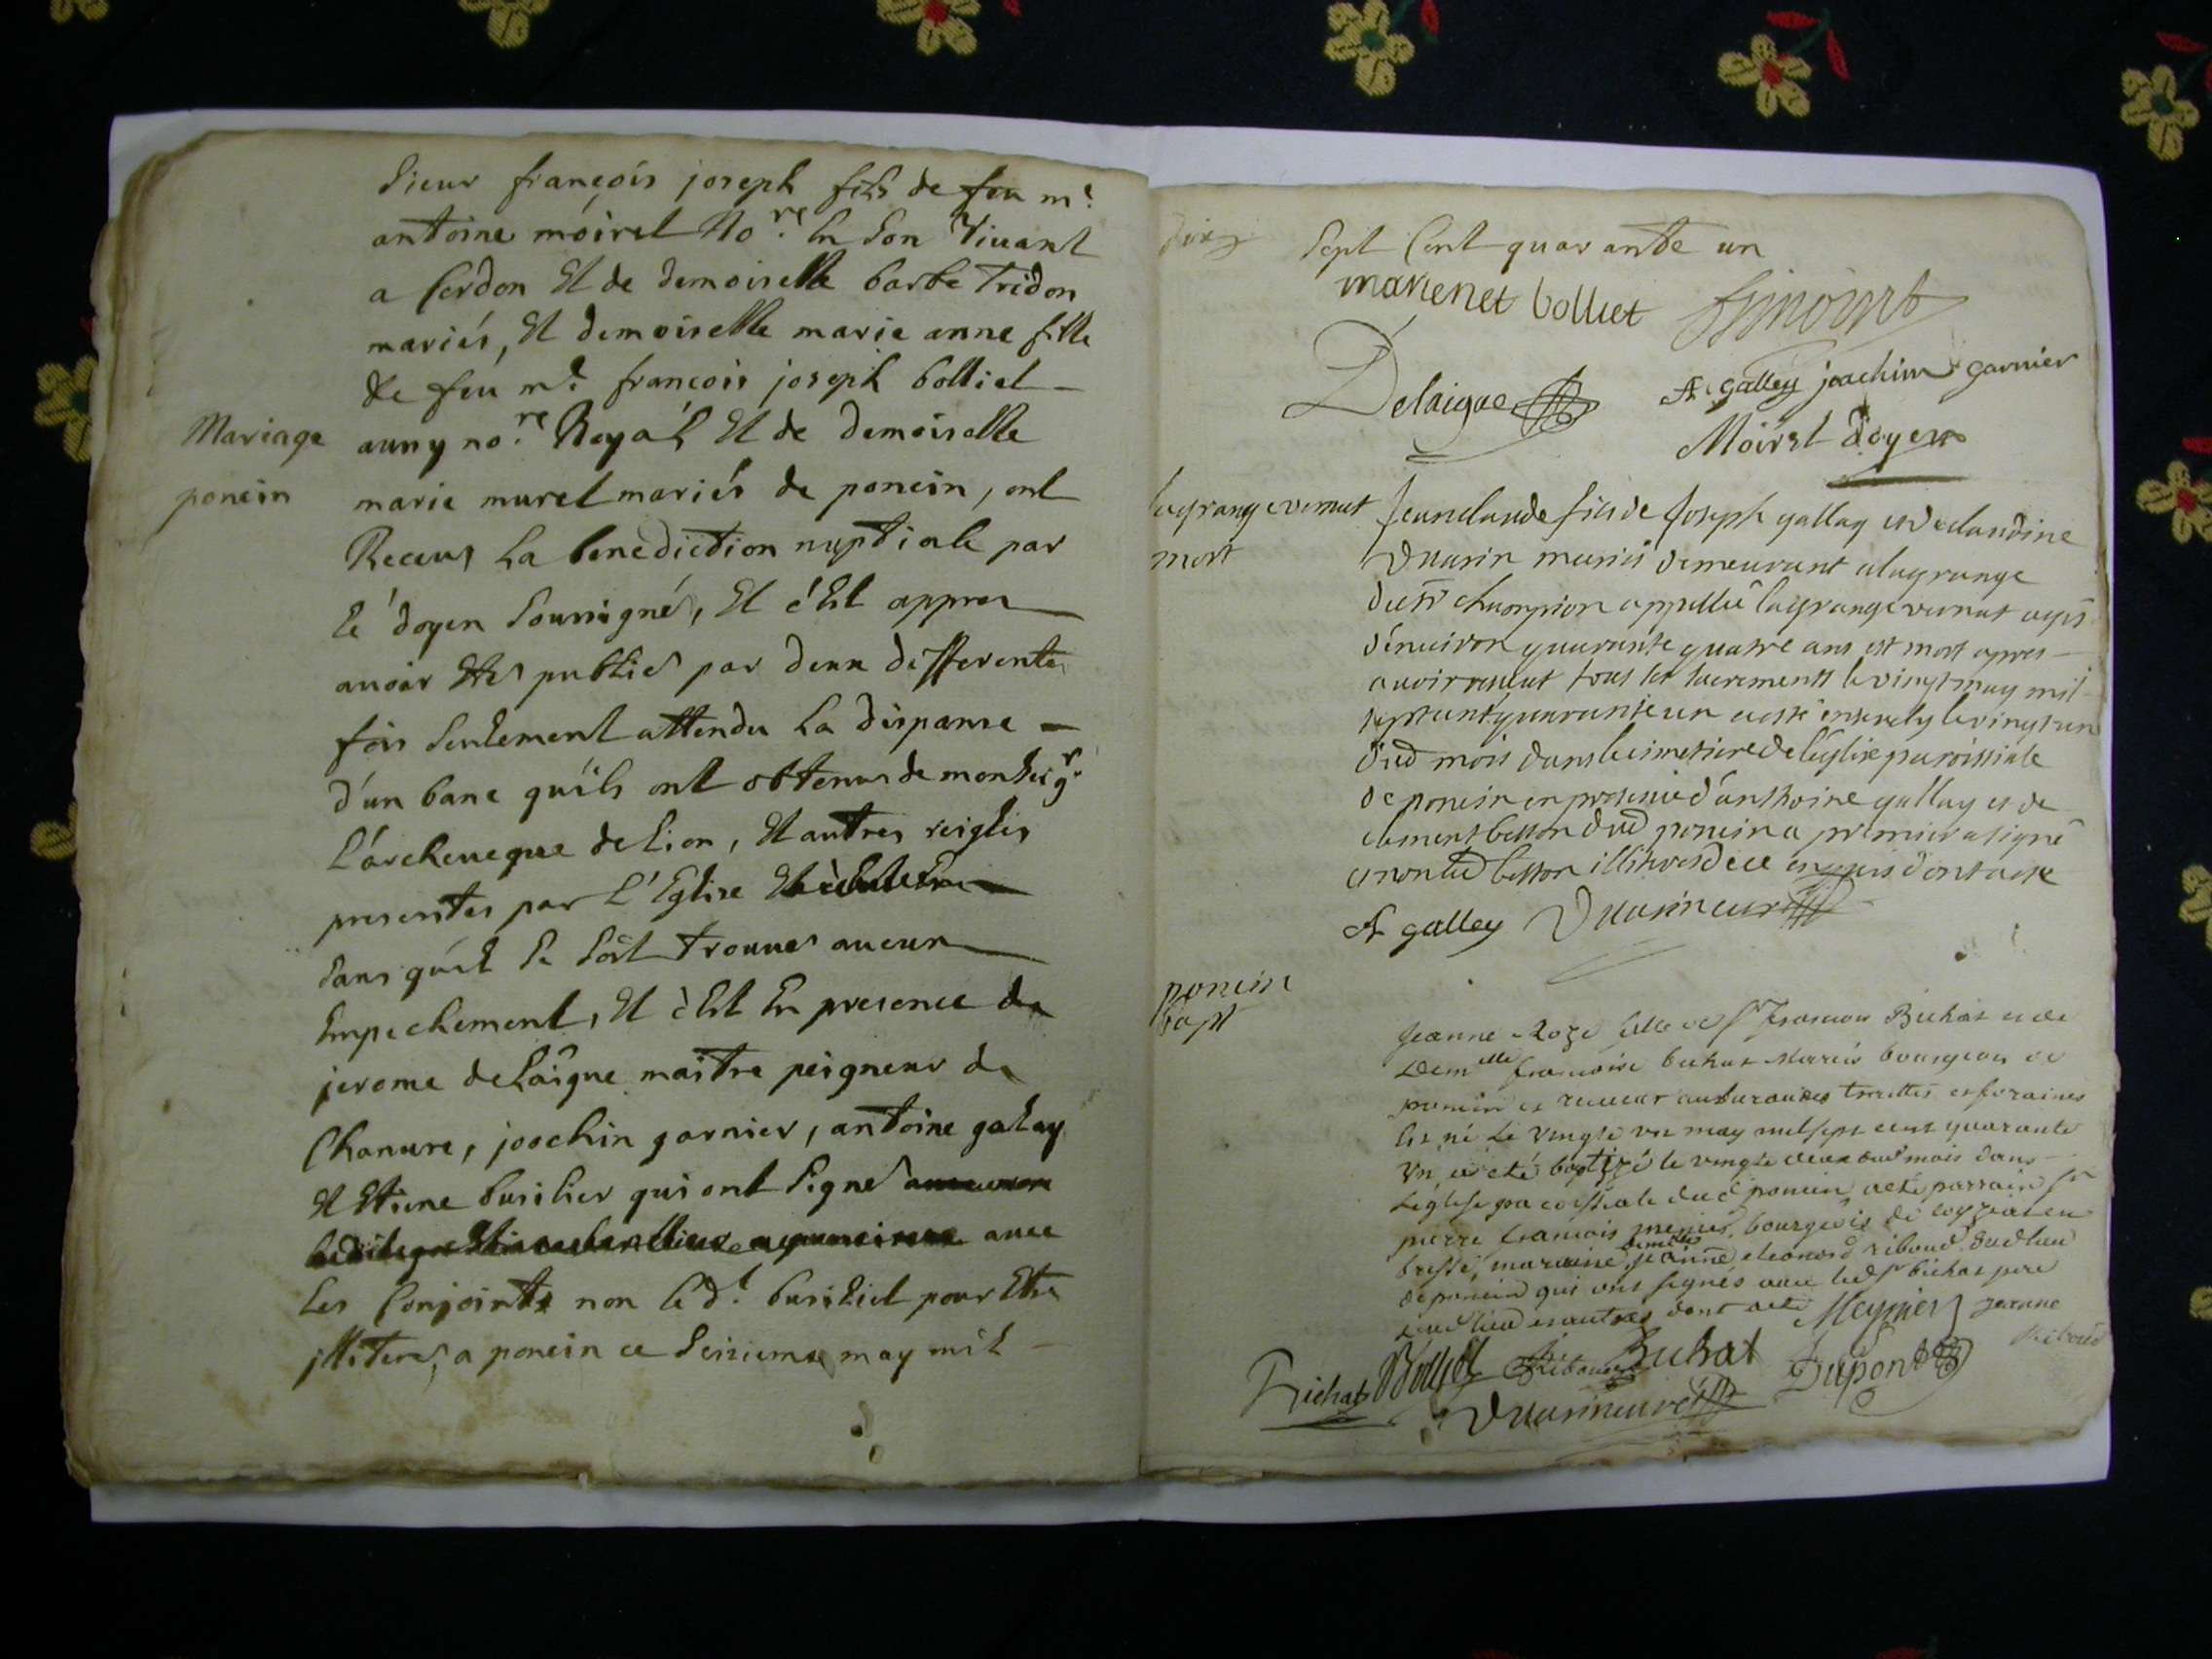 Sieur françois joseph fils de feu m.e
antoine moirel No.re En Son Vivant
a Cerdon Et de demoiselle barbe Tridon
mariés, Et demoiselle marie anne fille
de feu m.e francois joseph bolliet
Mariage
ponein
auny no.re Royal Et de demoiselle
marie murel mariés de ponein, ont
Receus La benediction nuptiale par
le doyen Soussigné, Et c'Est appres
avoir Etes publies par deux differentes
fois Seulement attendu La dispanse
d'un banc qu'ils ont obtenus de monseigr.
L'archeveque de Lion, Et autres reigles
prescrites par L'Eglise
Sans qu'il Se Soit trouves aucun
Empechement, Et c'Est En presence de
jerome deLaigue maitre peigneur de
Chanure, joachin garnier, antoine galay
Et Etiene burilier qui ont Signes
avec
Les Conjoints non Led.t buriliel pour Etre
illiteres, a ponein ce Seizieme may mil
Sept Cent quarante un
marienet bolliet
Delaigue A galley joachim garnier
Moirel doyen
lagrange vernut
mort
Jeanclaude fils de Joseph gallay et de claudine
mariés demeurant alagrange
du sr champion appellée lagrange vernut agés
d'environ quarante quatre ans est mort apres
avoir reseut tous les sacrements le vingt may mil
sept cent quarante un a esté ensevely le vingt un
dud mois dans le cimetiere de l'eglise paroissiale
de ponein en presence d'anthoine gallay et de
clement besson dud ponein a premier a signé
et non led besson illitere de ce enquis dont acte
A galley
ponein
bapt
Jeanne Roze fille de Sr francois Bichat et de
Demelle francoise bichat Mariés bourgeois de
ponein et receveur traittes et foraines
Est né Le vingt un may mil sept cent quarante
un, a eté baptizé le vingt deux dud mois dans
Leglise paroissiale dud ponein a eté parrain Sr
pierre francois menier bourgeois de
bresse, maraine demelle jeanne eleonord riboud dud lieu
de ponein qui ont signés avec led Sr bichat pere
dud lieu et autres dont acte Meynier jeanne
Riboud
Bichat Bolliet Riboud Bichat Dupont